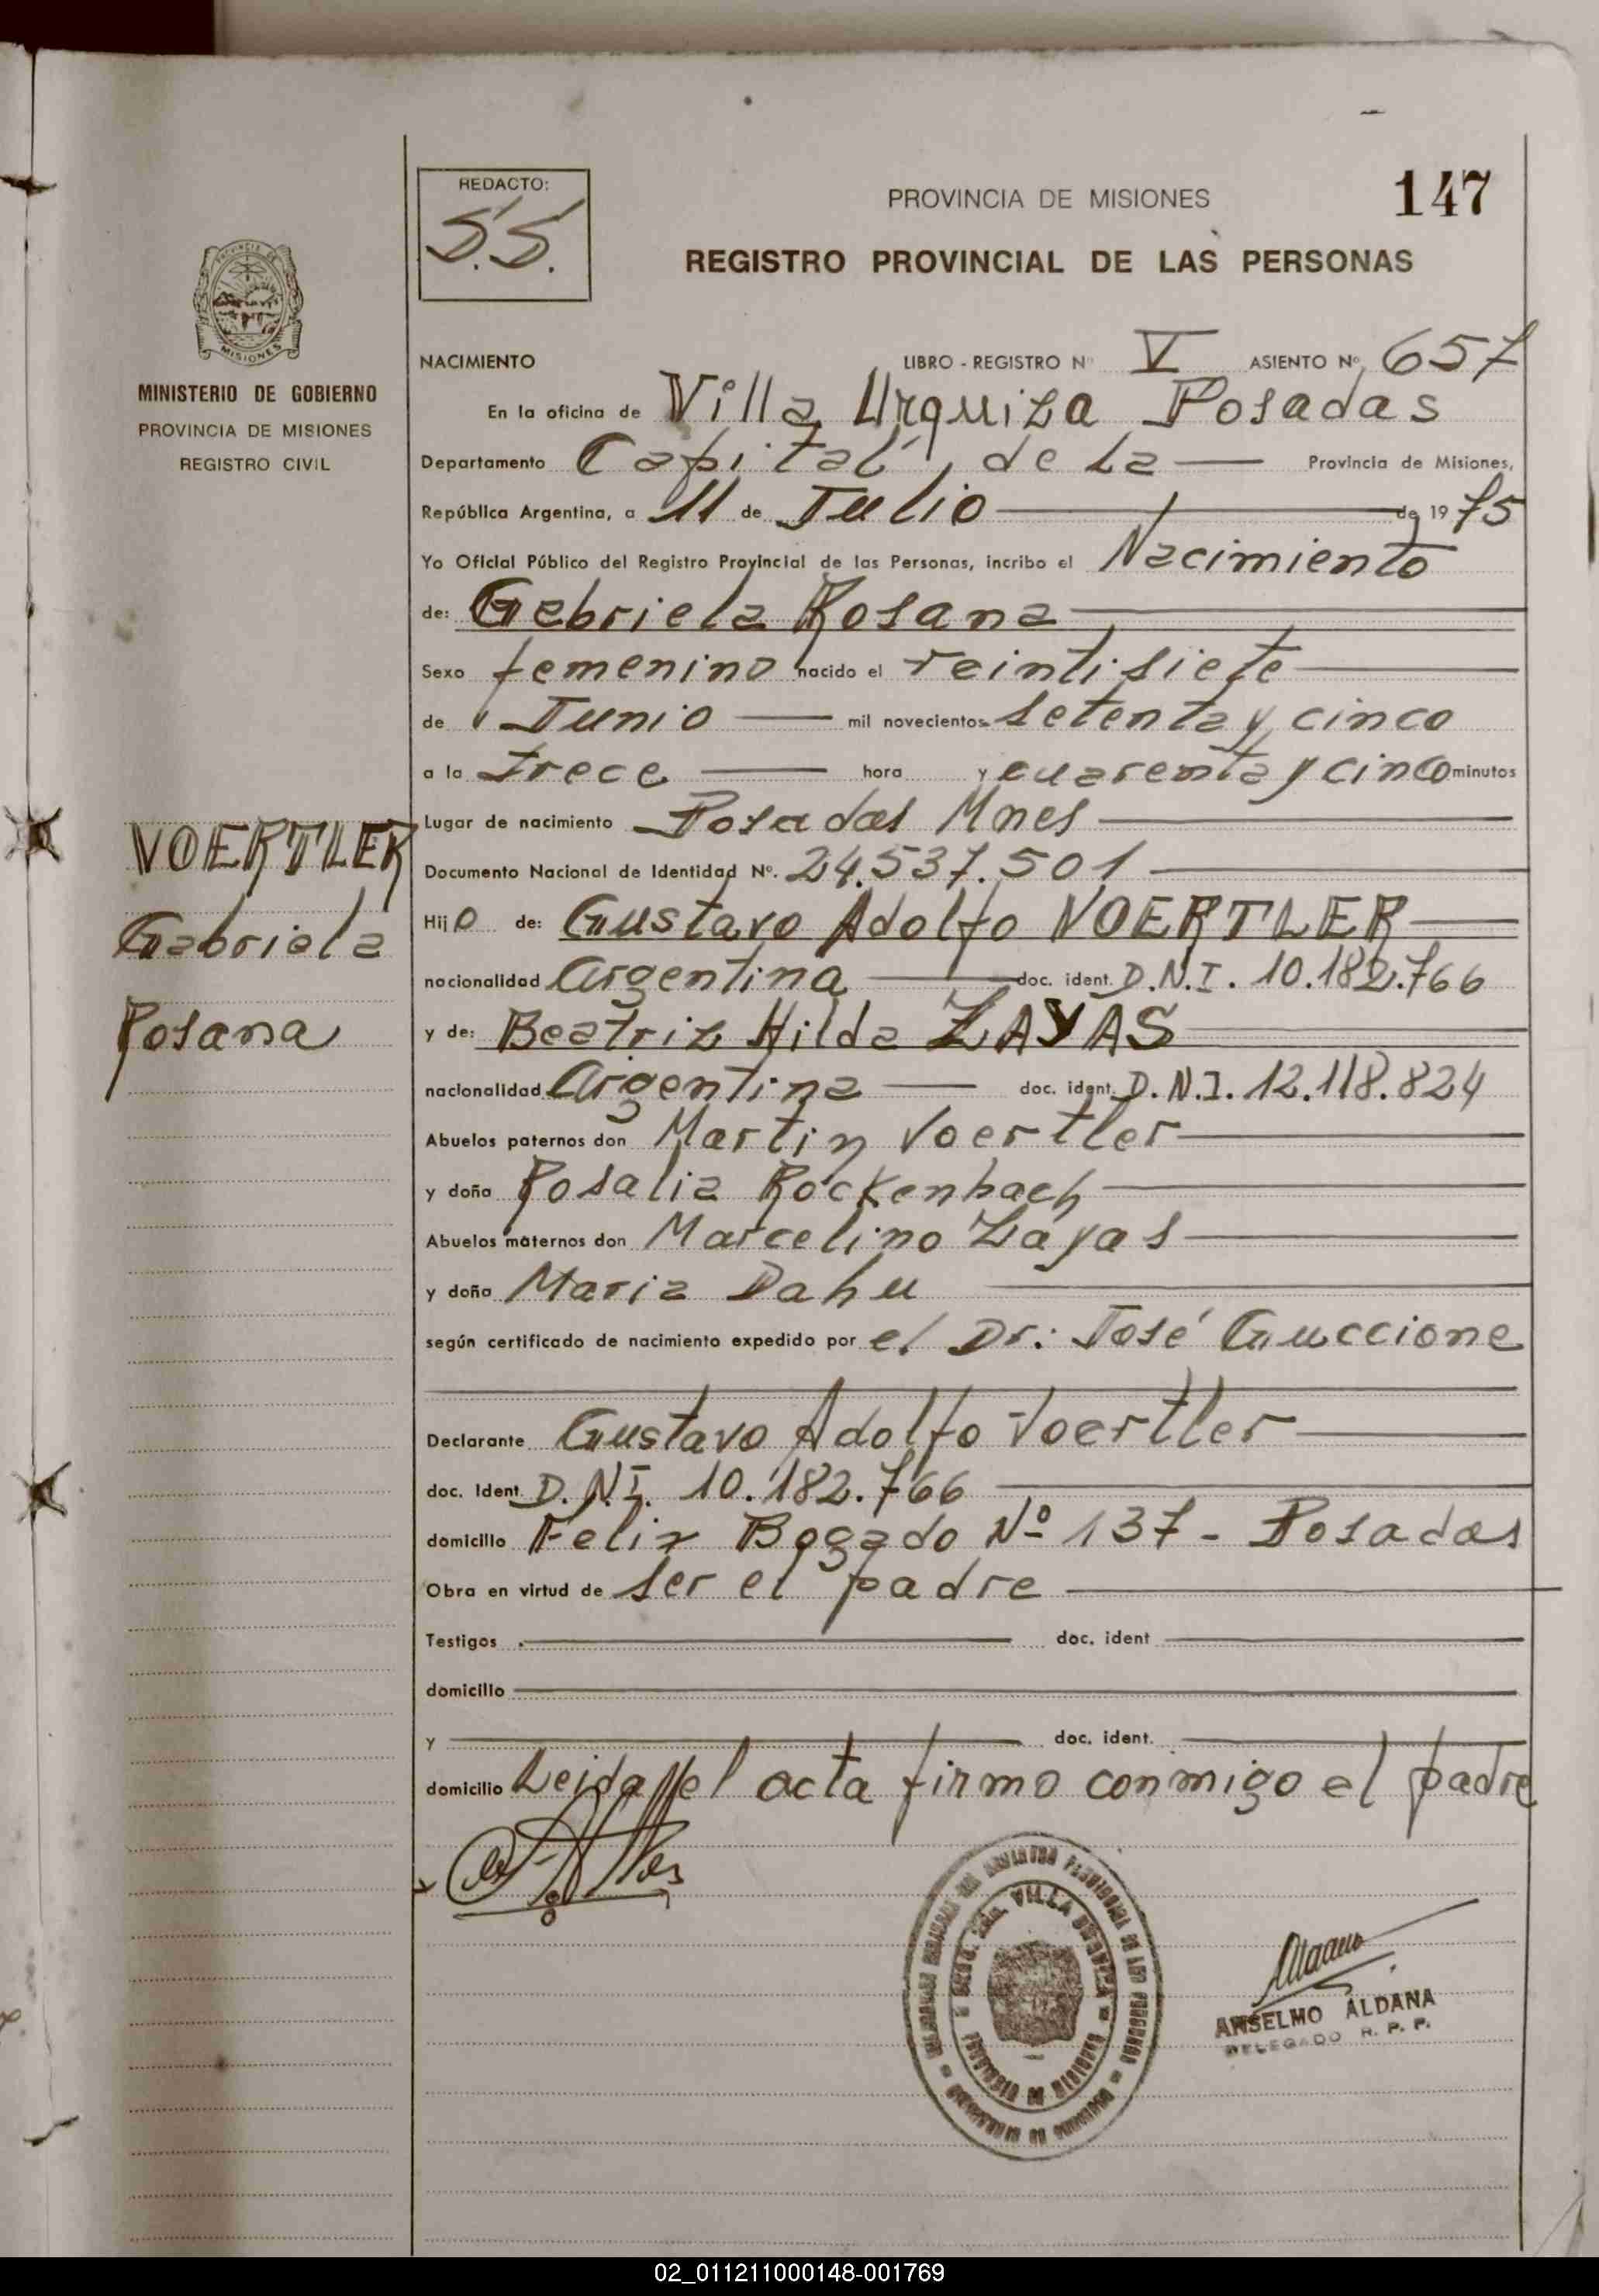 147
REDACTO:
S.S.
PROVINCIA DE MISIONES
REGISTRO PROVINCIAL DE LAS PERSONAS
MISIONES
MINISTERIO DE GOBIERNO
PROVINCIA DE MISIONES
REGISTRO CIVIL
NACIMIENTO LIBRO - REGISTRO Nº V ASIENTO Nº 657
En la oficina de Villa Urquiza Posadas
Departamento Capital, de La — Provincia de Misiones,
República Argentina, a 11 de Julio — de 1975
Yo Oficial Público del Registro Provincial de las Personas, incribo el Nacimiento
de: Gabriela Rosana
Sexo femenino nacido el veintisiete
de Junio — mil novecientos setenta y cinco
a la trece — hora y cuarenta y cinco minutos
Lugar de nacimiento Posadas Mnes
Documento Nacional de Identidad Nº. 24.537.501
VOERTLER
Gabriela
Rosana
Hijo de: Gustavo Adolfo VOERTLER
nacionalidad Argentina — doc. ident. D.N.I. 10.182.766
y de: Beatriz Hilda ZAYAS
nacionalidad Argentina — doc. ident. D.N.I. 12.118.824
Abuelos paternos don Martin Voertler
y doña Rosalia Rockenbach
Abuelos maternos don Marcelino Zayas
y doña Maria Dahu
según certificado de nacimiento expedido por el Dr: José Guccione
Declarante Gustavo Adolfo Voertler
doc. Ident. D.N.I. 10.182.766
domicilio Felix Bogado Nº 137 - Posadas
Obra en virtud de ser el padre
Testigos — doc. ident —
domicilio
y — doc. ident.
domicilio Leida el acta firmo conmigo el padre
VILLA URQUIZA
ANSELMO ALDANA
DELEGADO R. P. P.
02_011211000148-001769